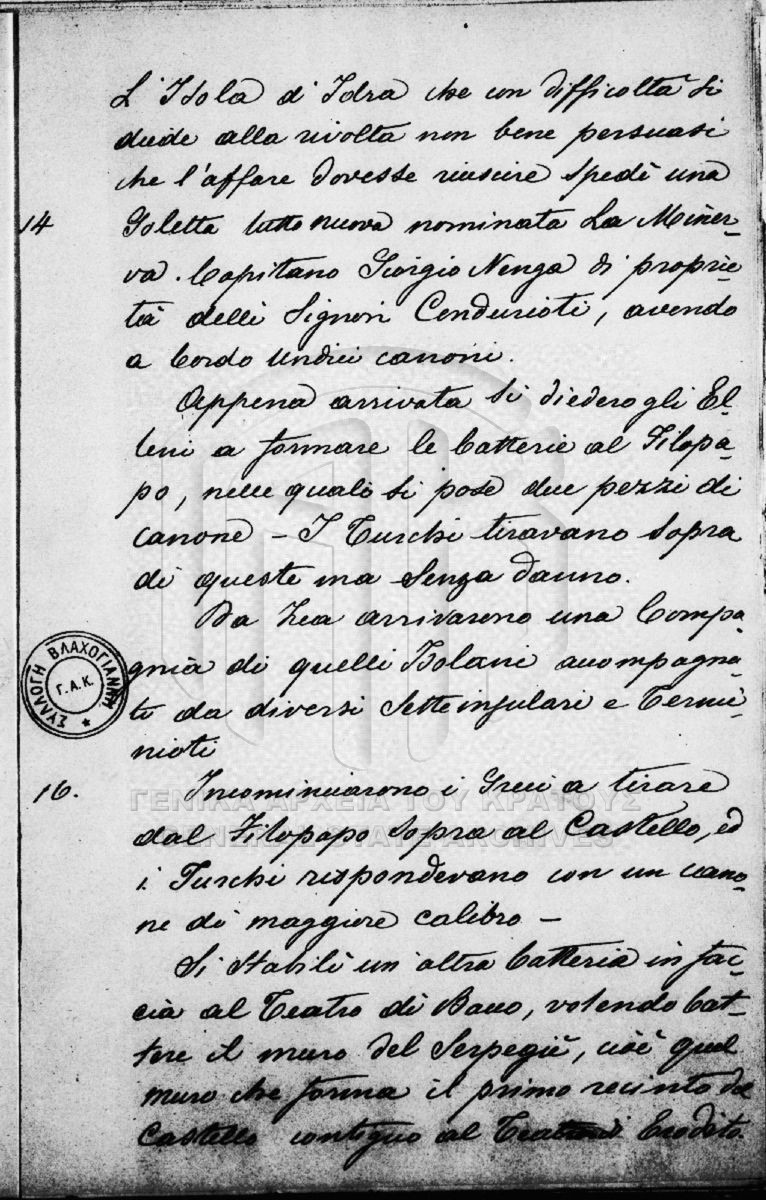 L'Isola d'Idra che con difficoltà si
diede alla rivolta non bene persuasi
che l'affare dovesse riuscire spedì una
14 Goletta tutto nuova nominata La Miner-
va. Capitano Giorgio Nenga di proprie
tà delli Signori Condurioti, avendo
a bordo undici canoni.
Appena arrivata si diedero gli El-
leni a formare le batterie al Filopa-
po, nelle quali si pose due pezzi di
canone - I Turchi tiravano sopra
di queste ma senza danno.
Da Zea arrivarono una Compa-
gnia di quelli Isolani accompagna-
ti da diversi Setteinsulari e Termi-
nioti
16. Incominciarono i Greci a tirare
dal Filopapo sopra al Castello, ed
i Turchi rispondevano con un cano-
ne di maggiore calibro -
Si stabilì un altra batteria in fac-
cia al Teatro di Bacco, volendo bat-
tere il muro del Serpegiè, cioè quel
muro che forma il primo recinto del
Castello contiguo al Erodoto.
ΣΥΛΛΟΓΗ ΒΛΑΧΟΓΙΑΝΝΗ
Γ.Α.Κ.
ΓΕΝΙΚΑ ΑΡΧΕΙΑ ΤΟΥ ΚΡΑΤΟΥΣ
STATE ARCHIVES